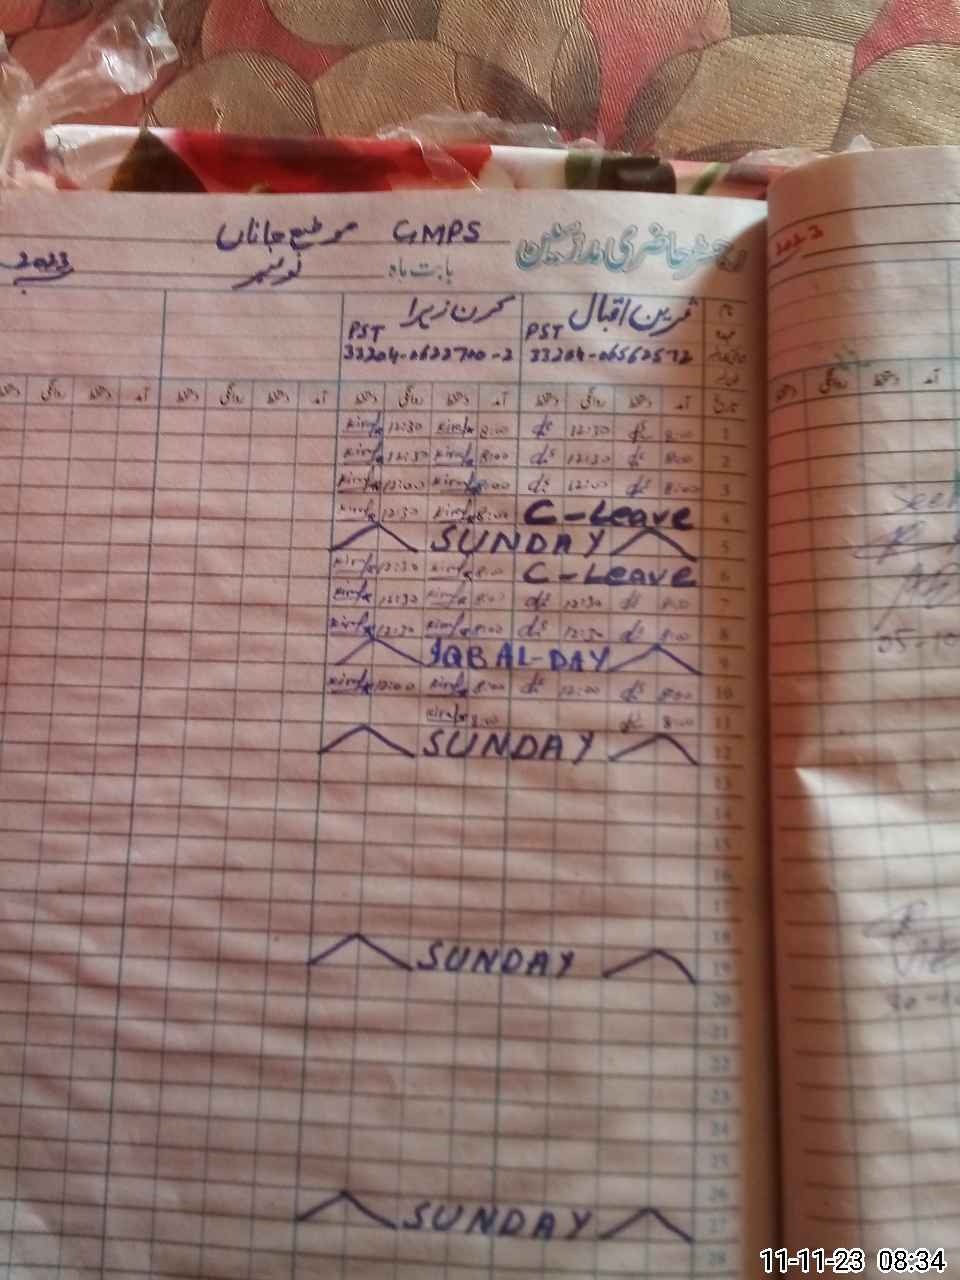 رجسٹر حاضری مدرسین GMPS موضع جاناں
بابت ماہ نومبر 2023
ثمرین اقبال
PST
کرن زہرا
PST
33204-0622700-2
آمد دستخط روانگی دستخط آمد دستخط روانگی دستخط آمد دستخط روانگی دستخط آمد دستخط روانگی دستخط
1 8:00 12:30 8:00 Kiran 12:30 Kiran
2 8:00 12:30 8:00 Kiran 12:30 Kiran
3 8:00 12:00 8:00 Kiran 12:00 Kiran
4 C-Leave 8:00 Kiran 12:30 Kiran
5 SUNDAY
6 C-Leave 8:00 Kiran 12:30 Kiran
7 8:00 12:30 8:00 Kiran 12:30 Kiran
8 8:00 12:30 8:00 Kiran 12:30 Kiran
9 IQBAL-DAY
10 8:00 12:00 8:00 Kiran 12:00 Kiran
11 8:00 8:00 Kiran
12 SUNDAY
13
14
15
16
17
18
19 SUNDAY
20
21
22
23
24
25
26 SUNDAY
27
28
2023
11-11-23 08:34